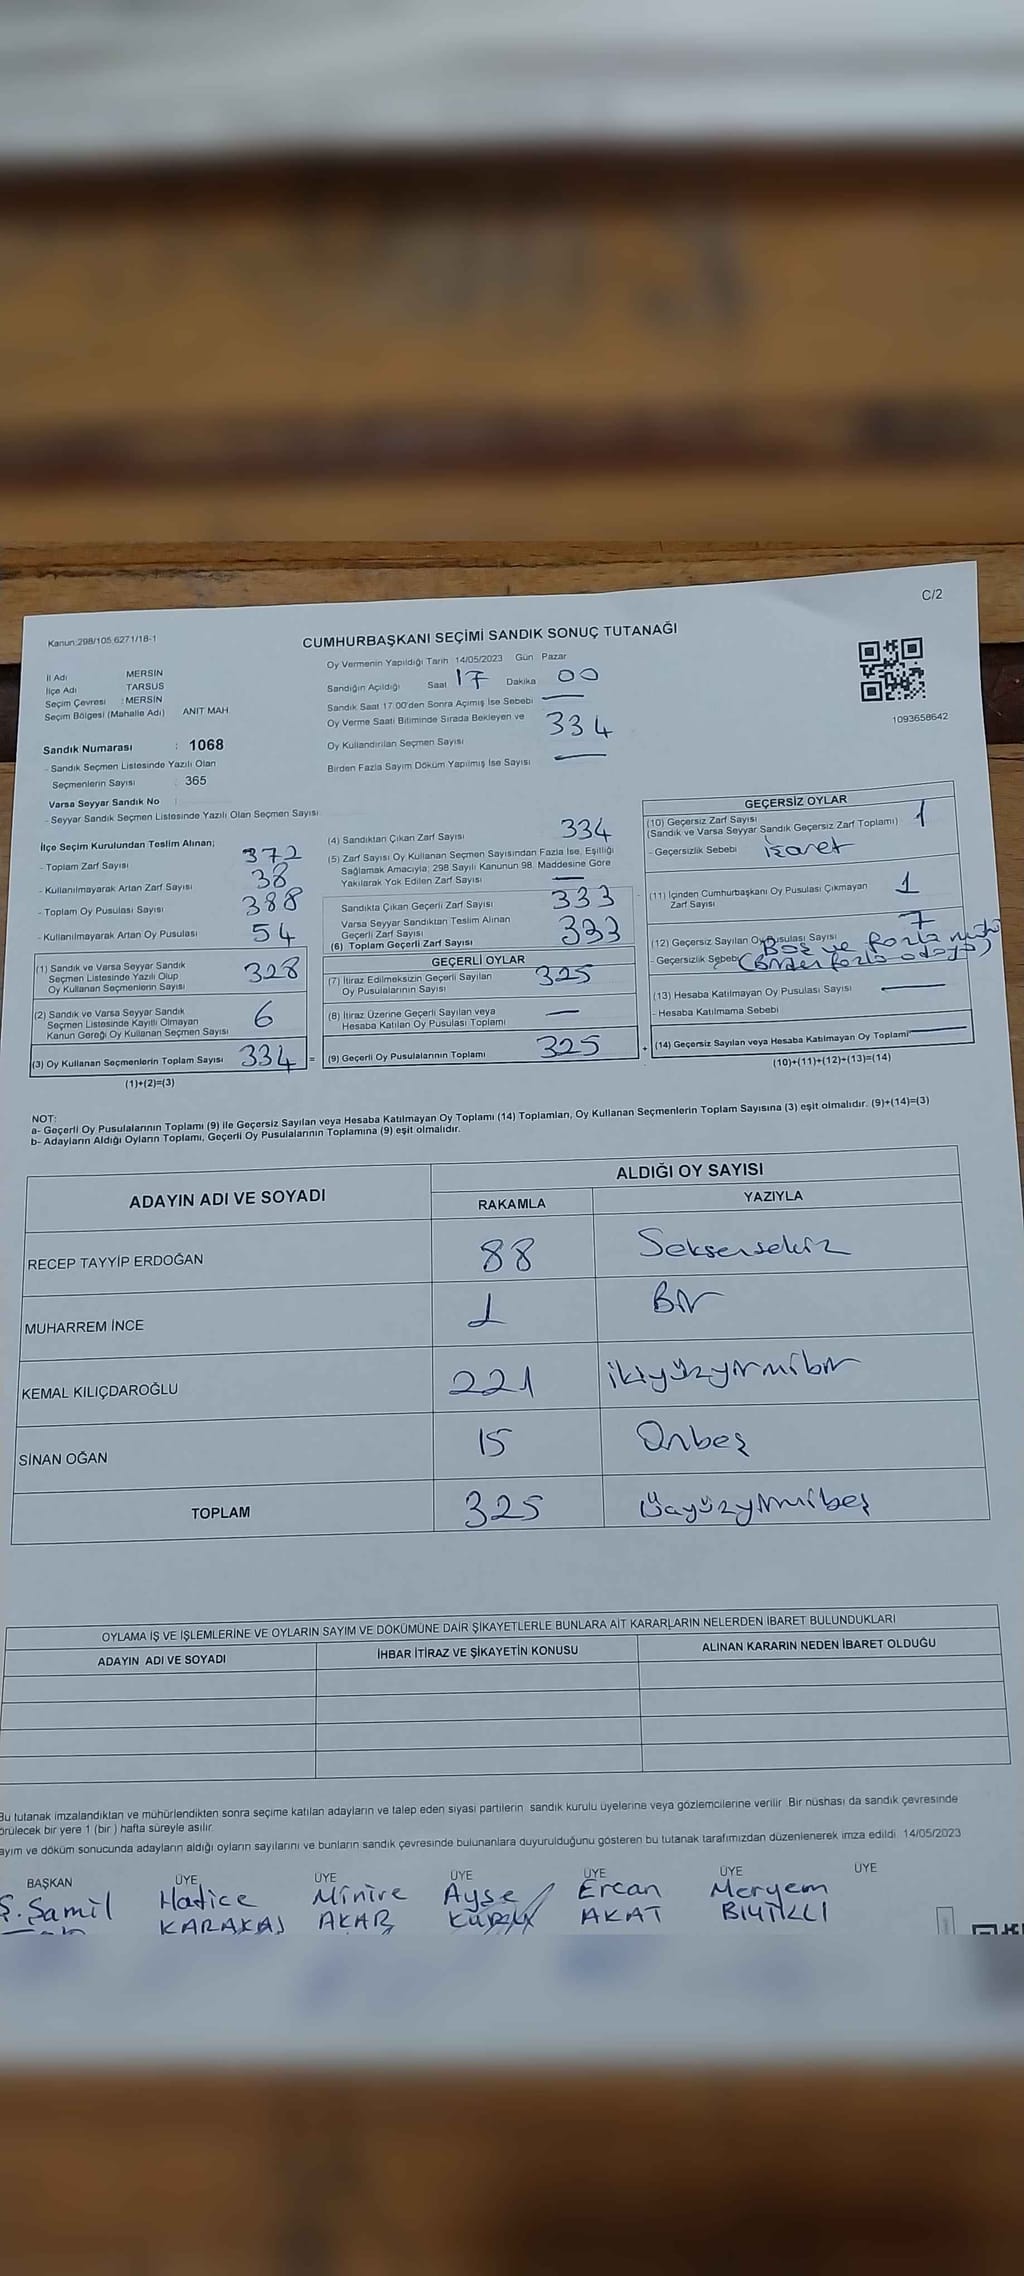 C/2
Kanun:298/105,6271/18-1
CUMHURBAŞKANI SEÇİMİ SANDIK SONUÇ TUTANAĞI
İl Adı MERSİN
İlçe Adı TARSUS
Seçim Çevresi : MERSİN
Seçim Bölgesi (Mahalle Adı) ANIT MAH.
Sandık Numarası : 1068
- Sandık Seçmen Listesinde Yazılı Olan
Seçmenlerin Sayısı : 365
Varsa Seyyar Sandık No :
- Seyyar Sandık Seçmen Listesinde Yazılı Olan Seçmen Sayısı
Oy Vermenin Yapıldığı Tarih 14/05/2023 Gün Pazar
Sandığın Açıldığı Saat 17 Dakika 00
Sandık Saat 17.00'den Sonra Açılmış İse Sebebi —
Oy Verme Saati Bitiminde Sırada Bekleyen ve
Oy Kullandırılan Seçmen Sayısı 334
Birden Fazla Sayım Döküm Yapılmış İse Sayısı —
1093658642
İlçe Seçim Kurulundan Teslim Alınan;
- Toplam Zarf Sayısı 372
- Kullanılmayarak Artan Zarf Sayısı 38
- Toplam Oy Pusulası Sayısı 388
- Kullanılmayarak Artan Oy Pusulası 54
(1) Sandık ve Varsa Seyyar Sandık
Seçmen Listesinde Yazılı Olup
Oy Kullanan Seçmenlerin Sayısı 328
(2) Sandık ve Varsa Seyyar Sandık
Seçmen Listesinde Kayıtlı Olmayan
Kanun Gereği Oy Kullanan Seçmen Sayısı 6
(3) Oy Kullanan Seçmenlerin Toplam Sayısı 334 =
(1)+(2)=(3)
(4) Sandıktan Çıkan Zarf Sayısı 334
(5) Zarf Sayısı Oy Kullanan Seçmen Sayısından Fazla İse, Eşitliği
Sağlamak Amacıyla, 298 Sayılı Kanunun 98. Maddesine Göre
Yakılarak Yok Edilen Zarf Sayısı —
Sandıkta Çıkan Geçerli Zarf Sayısı 333
Varsa Seyyar Sandıktan Teslim Alınan
Geçerli Zarf Sayısı
(6) Toplam Geçerli Zarf Sayısı 333
GEÇERLİ OYLAR
(7) İtiraz Edilmeksizin Geçerli Sayılan
Oy Pusulalarının Sayısı 325
(8) İtiraz Üzerine Geçerli Sayılan veya
Hesaba Katılan Oy Pusulası Toplamı —
(9) Geçerli Oy Pusulalarının Toplamı 325 +
GEÇERSİZ OYLAR
(10) Geçersiz Zarf Sayısı
(Sandık ve Varsa Seyyar Sandık Geçersiz Zarf Toplamı) 1
- Geçersizlik Sebebi işaret
(11) İçinden Cumhurbaşkanı Oy Pusulası Çıkmayan
Zarf Sayısı 1
(12) Geçersiz Sayılan Oy Pusulası Sayısı 7
- Geçersizlik Sebebi Boş ve fazla mühür
(Birden fazla adaya)
(13) Hesaba Katılmayan Oy Pusulası Sayısı —
- Hesaba Katılmama Sebebi
(14) Geçersiz Sayılan veya Hesaba Katılmayan Oy Toplamı —
(10)+(11)+(12)+(13)=(14)
NOT:
a- Geçerli Oy Pusulalarının Toplamı (9) ile Geçersiz Sayılan veya Hesaba Katılmayan Oy Toplamı (14) Toplamları, Oy Kullanan Seçmenlerin Toplam Sayısına (3) eşit olmalıdır. (9)+(14)=(3)
b- Adayların Aldığı Oyların Toplamı, Geçerli Oy Pusulalarının Toplamına (9) eşit olmalıdır.
ADAYIN ADI VE SOYADI
ALDIĞI OY SAYISI
RAKAMLA YAZIYLA
RECEP TAYYİP ERDOĞAN 88 Seksensekiz
MUHARREM İNCE 1 Bir
KEMAL KILIÇDAROĞLU 221 ikiyüzyirmibir
SİNAN OĞAN 15 Onbeş
TOPLAM 325 Üçyüzyirmibeş
OYLAMA İŞ VE İŞLEMLERİNE VE OYLARIN SAYIM VE DÖKÜMÜNE DAİR ŞİKAYETLERLE BUNLARA AİT KARARLARIN NELERDEN İBARET BULUNDUKLARI
ADAYIN ADI VE SOYADI İHBAR İTİRAZ VE ŞİKAYETİN KONUSU ALINAN KARARIN NEDEN İBARET OLDUĞU
Bu tutanak imzalandıktan ve mühürlendikten sonra seçime katılan adayların ve talep eden siyasi partilerin sandık kurulu üyelerine veya gözlemcilerine verilir. Bir nüshası da sandık çevresinde
örülecek bir yere 1 (bir) hafta süreyle asılır.
ayım ve döküm sonucunda adayların aldığı oyların sayılarını ve bunların sandık çevresinde bulunanlara duyurulduğunu gösteren bu tutanak tarafımızdan düzenlenerek imza edildi. 14/05/2023
BAŞKAN ÜYE ÜYE ÜYE ÜYE ÜYE ÜYE
Ş. Şamil Hatice Minire Ayşe Ercan Meryem
KARAKAŞ AKAR AKAT